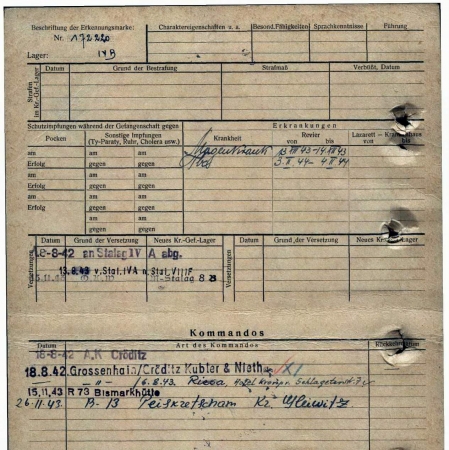 Beschriftung der Erkennungsmarke:
Nr. 172220
Lager: IVB
Charaktereigenschaften u. a. Besond. Fähigkeiten Sprachkenntnisse Führung
Strafen im Kr.-Gef.-Lager
Datum Grund der Bestrafung Strafmaß Verbüßt, Datum
Schutzimpfungen während der Gefangenschaft gegen
Erkrankungen
Pocken Sonstige Impfungen (Ty-Paraty, Ruhr, Cholera usw.) Krankheit Revier von bis Lazarett – Krankenhaus von bis
am am Magenkrank
Erfolg gegen 3.II 44 - 4.II 44
am am
Erfolg gegen
am am
Erfolg gegen
am
gegen
am
gegen
Versetzungen
Datum Grund der Versetzung Neues Kr.-Gef.-Lager
Versetzungen
Datum Grund der Versetzung Neues Kr.-Gef.-Lager
-8-42 an Stalag IV A abg.
13.8.43 v. Stal. IVA n. Stal. VIIIF
M-Stalag 8 B
Kommandos
Datum Art des Kommandos Rückkehrdatum
18-8-42 A.K Cröditz
18.8.42. Grossenhain/Cröditz Kubler & Nieth
-"- 6.8.43. Riesa,
15.11.43 R 73 Bismarkhütte
26.11.43. B-13 Peiskretscham Kr. Gleiwitz